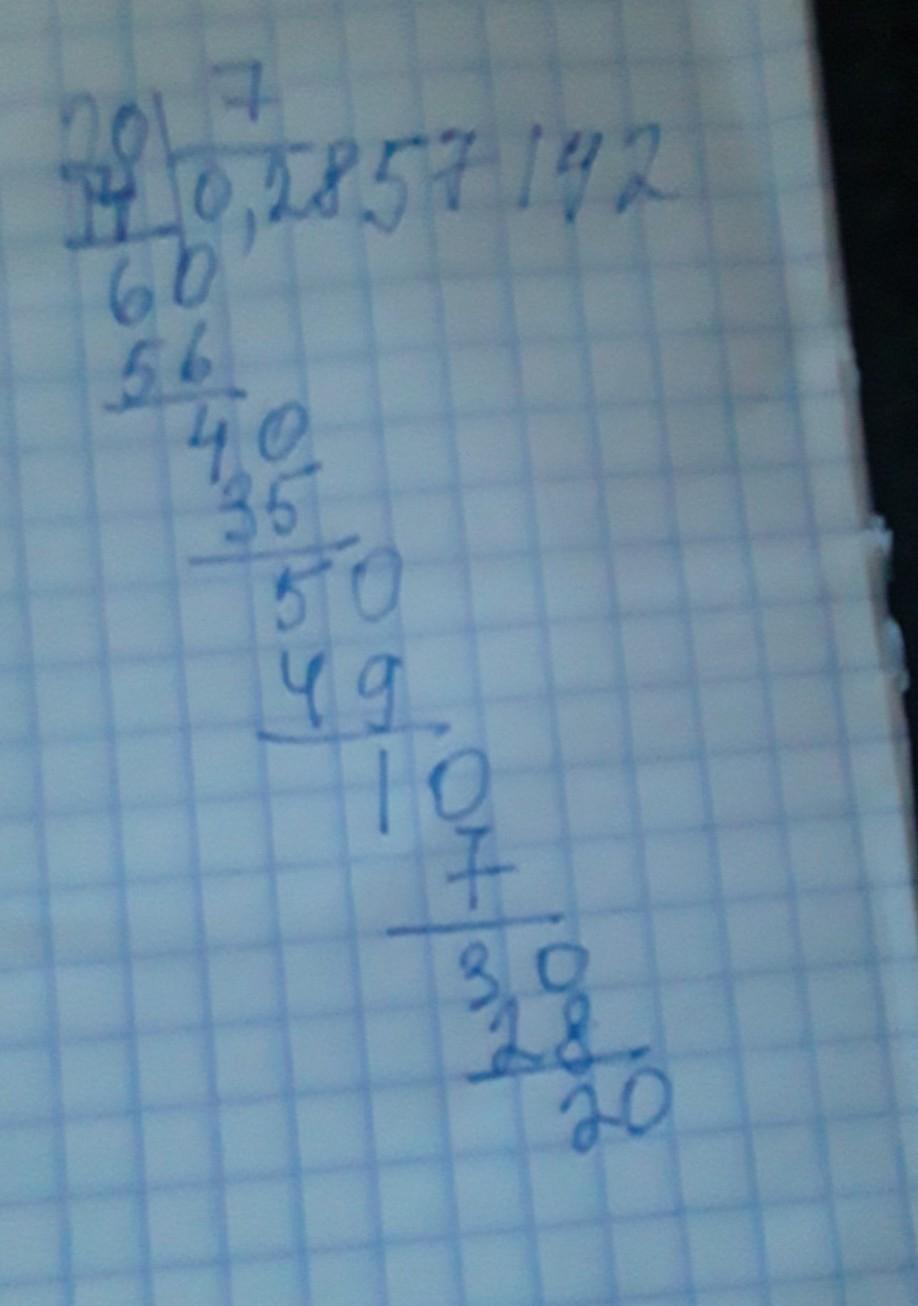 20 7
14 0,2857142
60
56
40
35
50
49
10
7
30
28
20